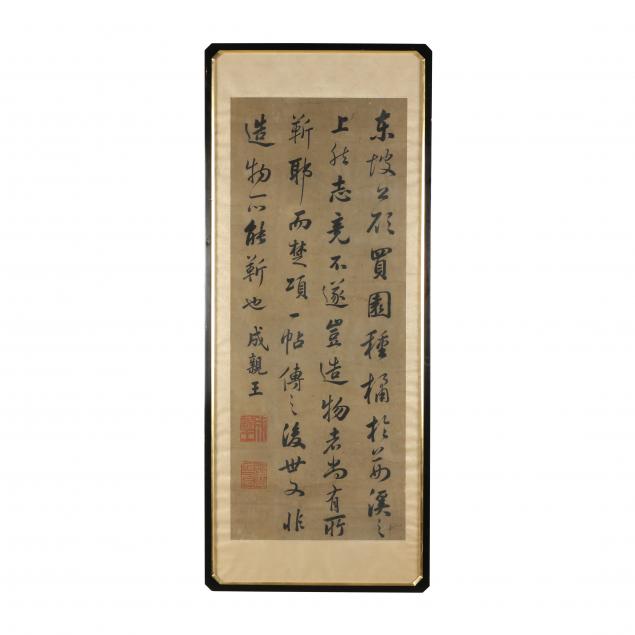 東坡公欲買園種橘於荊溪之
上然志竟不遂豈造物者尚有所
靳耶而楚頌一帖傳之後世又非
造物所能靳也 成親王